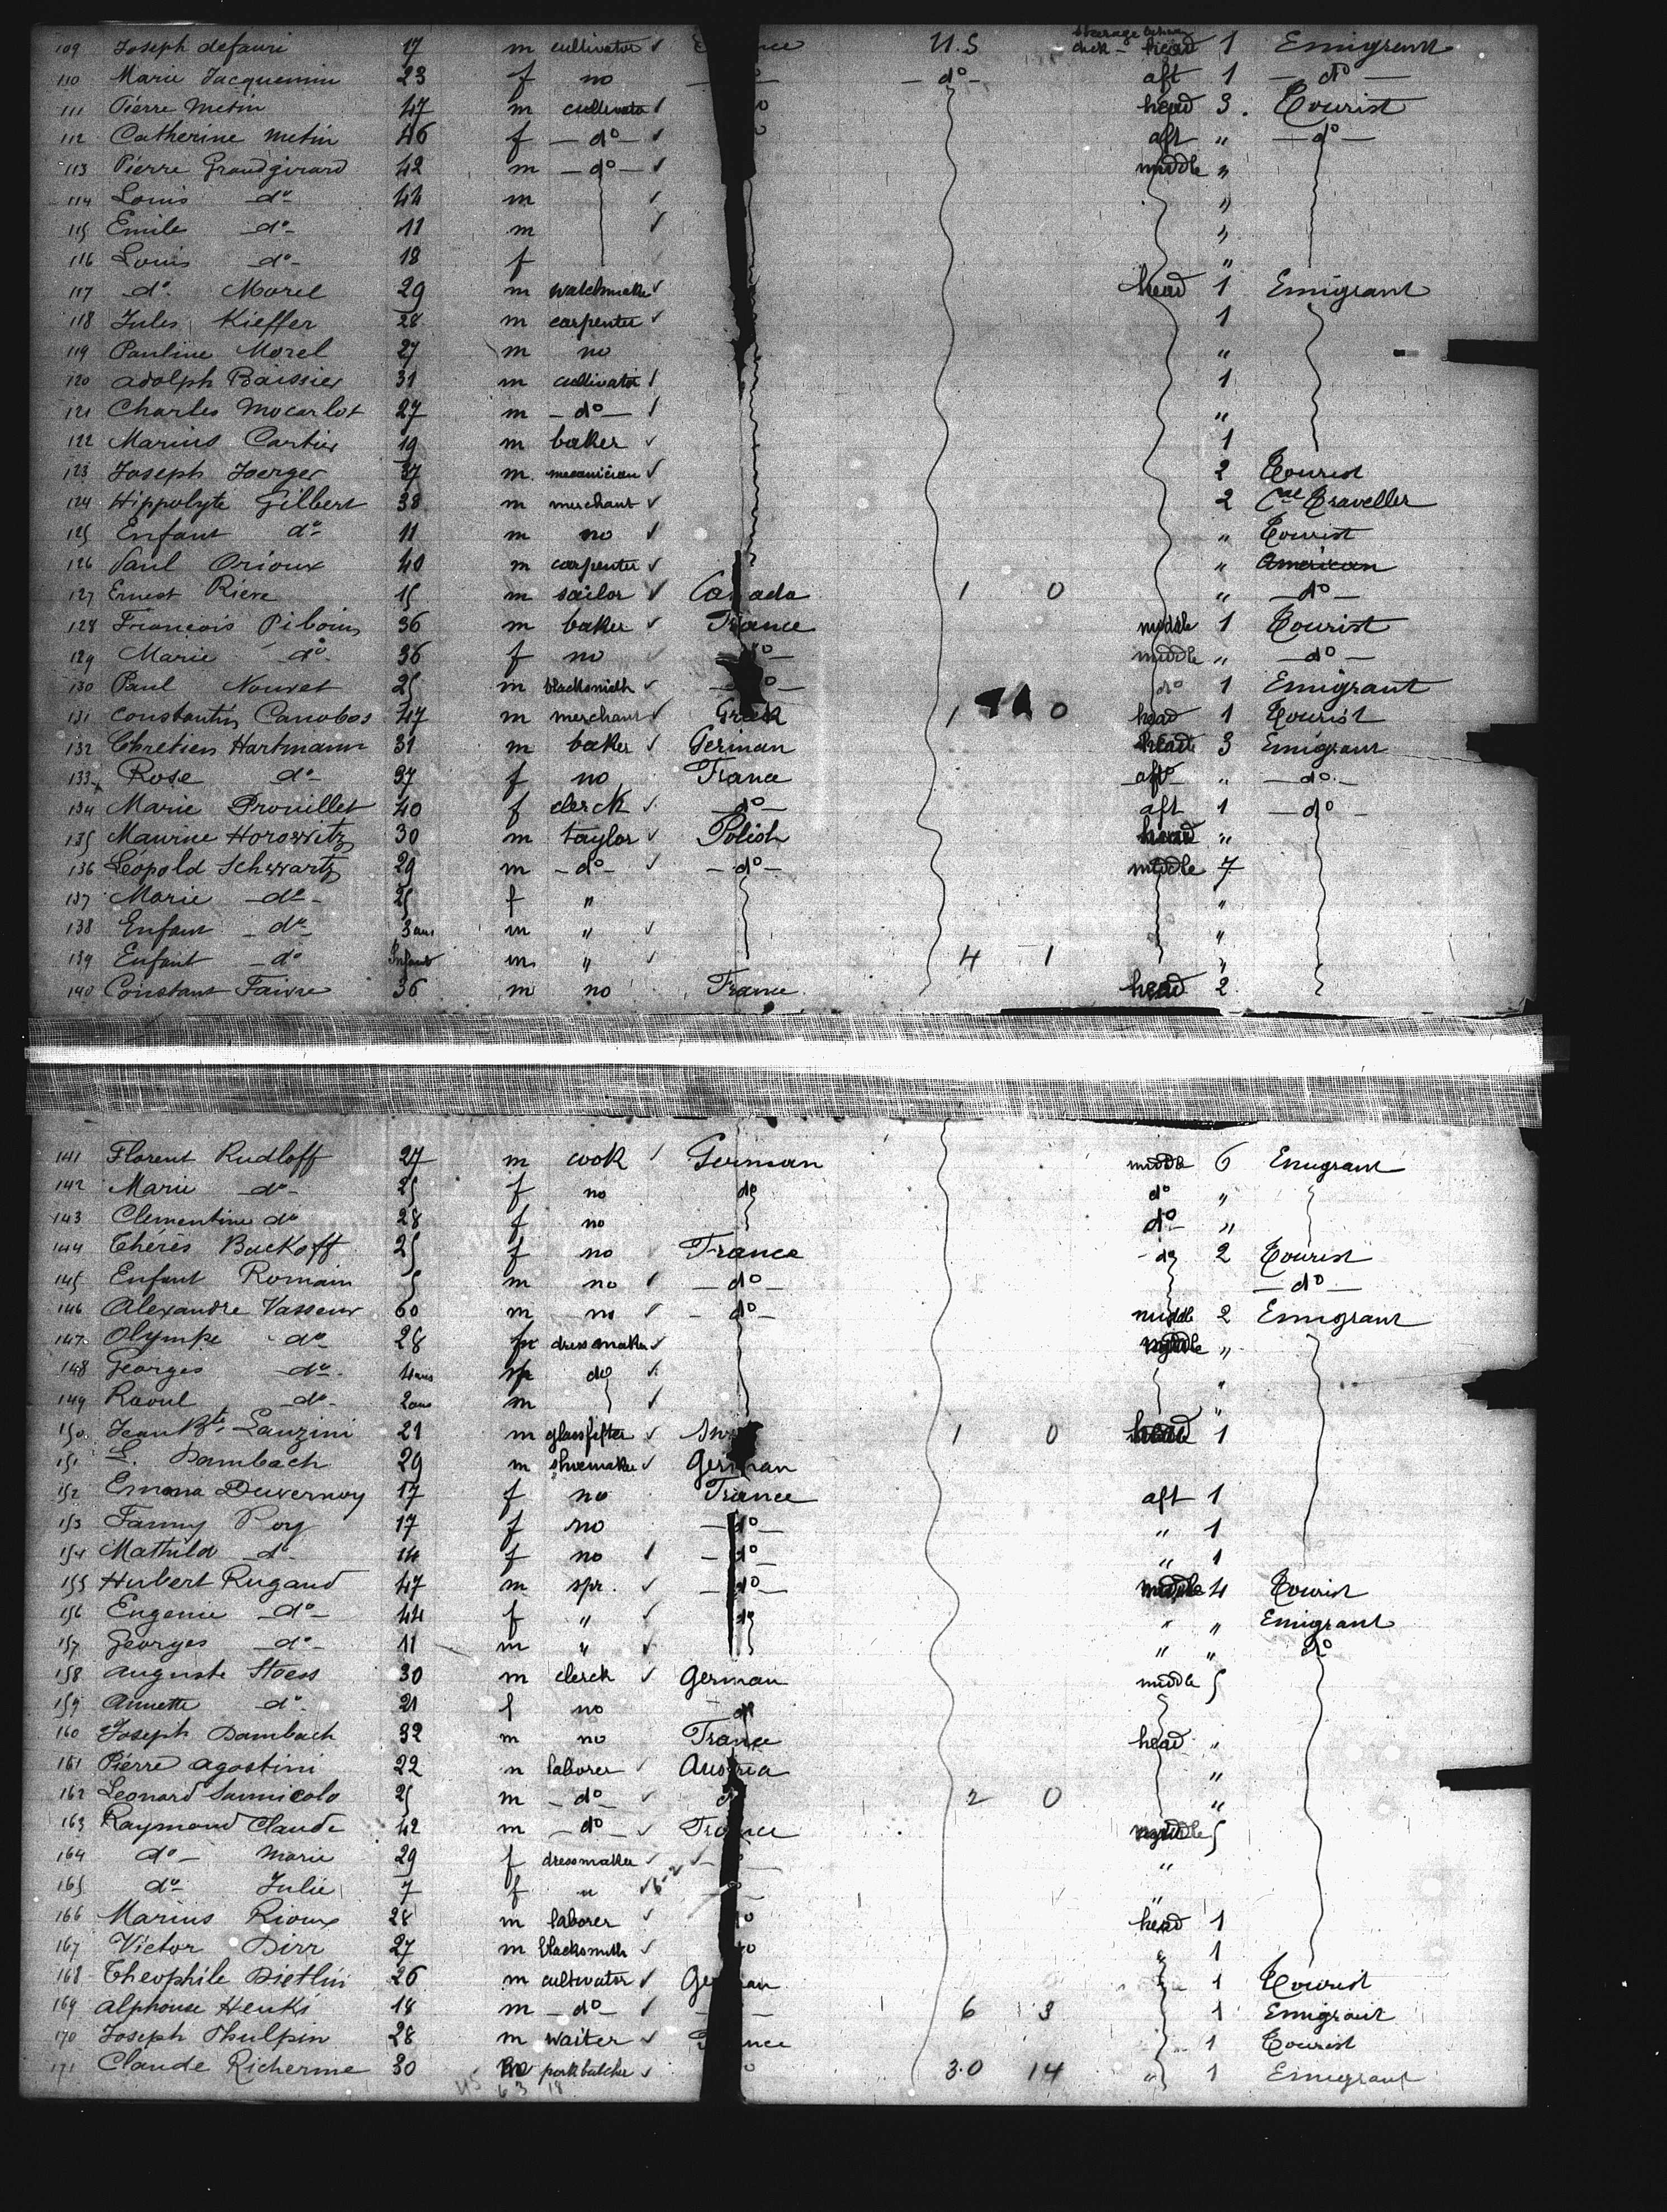 109 Joseph defauri 17 m cultivator U.S head 1 Emigrant
110 Marie Jacquemin 23 f no — do — aft 1 — do —
111 Pierre Metin 47 m cultivator head 3 Tourist
112 Catherine Metin 46 f — do — aft " — do —
113 Pierre Grandgirard 42 m — do — middle "
114 Louis do 44 m "
115 Emile do 11 m "
116 Louis do 18 f "
117 do Morel 29 m watchmaker head 1 Emigrant
118 Jules Kieffer 28 m carpenter 1
119 Pauline Morel 27 m no "
120 Adolph Baissier 31 m cultivator 1
121 Charles Mocarlot 27 m — do — "
122 Marius Cartier 19 m baker 1
123 Joseph Joerger 37 m mecanician 2 Tourist
124 Hippolyte Gilbert 38 m merchant 2 Cal Traveller
125 Enfant do 11 m no " Tourist
126 Paul Orioux 40 m carpenter " American
127 Ernest Riere 15 m sailor Canada 1 0 " — do —
128 Francois Piboin 36 m baker France middle 1 Tourist
129 Marie do 36 f no do — middle " — do —
130 Paul Nouvet 25 m blacksmith — do — do 1 Emigrant
131 Constantin Canobas 47 m merchant Greek 1 0 head 1 Tourist
132 Chretien Hartmann 31 m baker German head 3 Emigrant
133 Rose do 37 f no France aft " — do —
134 Marie Prouillet 40 f clerck — do — aft 1 — do —
135 Maurice Horowitz 30 m taylor Polish head "
136 Leopold Schwartz 29 m — do — — do — middle 7
137 Marie do 25 f " "
138 Enfant do 3 ans m " "
139 Enfant do Infant m " 4 1 "
140 Constant Faivre 36 m no France head 2
141 Florent Rudloff 27 m cook German middle 6 Emigrant
142 Marie do 25 f no do do "
143 Clementine do 28 f no do "
144 Thérès Backoff 25 f no France do 2 Tourist
145 Enfant Romain 5 m no — do — — do —
146 Alexandre Vasseur 60 m no — do — middle 2 Emigrant
147 Olympe do 28 f dressmaker middle "
148 Georges do 4 ans do "
149 Raoul do 2 ans m "
150 Jean Bte Lanzini 21 m glassfitter 1 0 head 1
151 L. Dambach 29 m shoemaker German
152 Emma Duvernoy 17 f no France aft 1
153 Fanny Roy 17 f no — do — " 1
154 Mathild do 14 f no — do — " 1
155 Hubert Rugaud 47 m spr. — do — middle 4 Tourist
156 Eugenie do 44 f " do " " Emigrant
157 Georges do 11 m " " " do
158 Auguste Stoess 30 m clerck German middle 5
159 Annette do 21 f no do
160 Joseph Dambach 32 m no France head "
161 Pierre Agostini 22 m laborer Austria "
162 Leonard Sannicolo 25 m — do — 2 0 "
163 Raymond Claude 42 m — do — France middle 5
164 do Marie 29 f dressmaker "
165 do Julie 7 f " "
166 Marius Rioux 28 m laborer do head 1
167 Victor Dirr 27 m blacksmith do " 1
168 Theophile Dietlin 26 m cultivator German 1 Tourist
169 Alphonse Henki 18 m — do — 6 3 1 Emigrant
170 Joseph Thulpin 28 m waiter France 1 Tourist
171 Claude Richerme 30 m porkbutcher 30 14 " 1 Emigrant